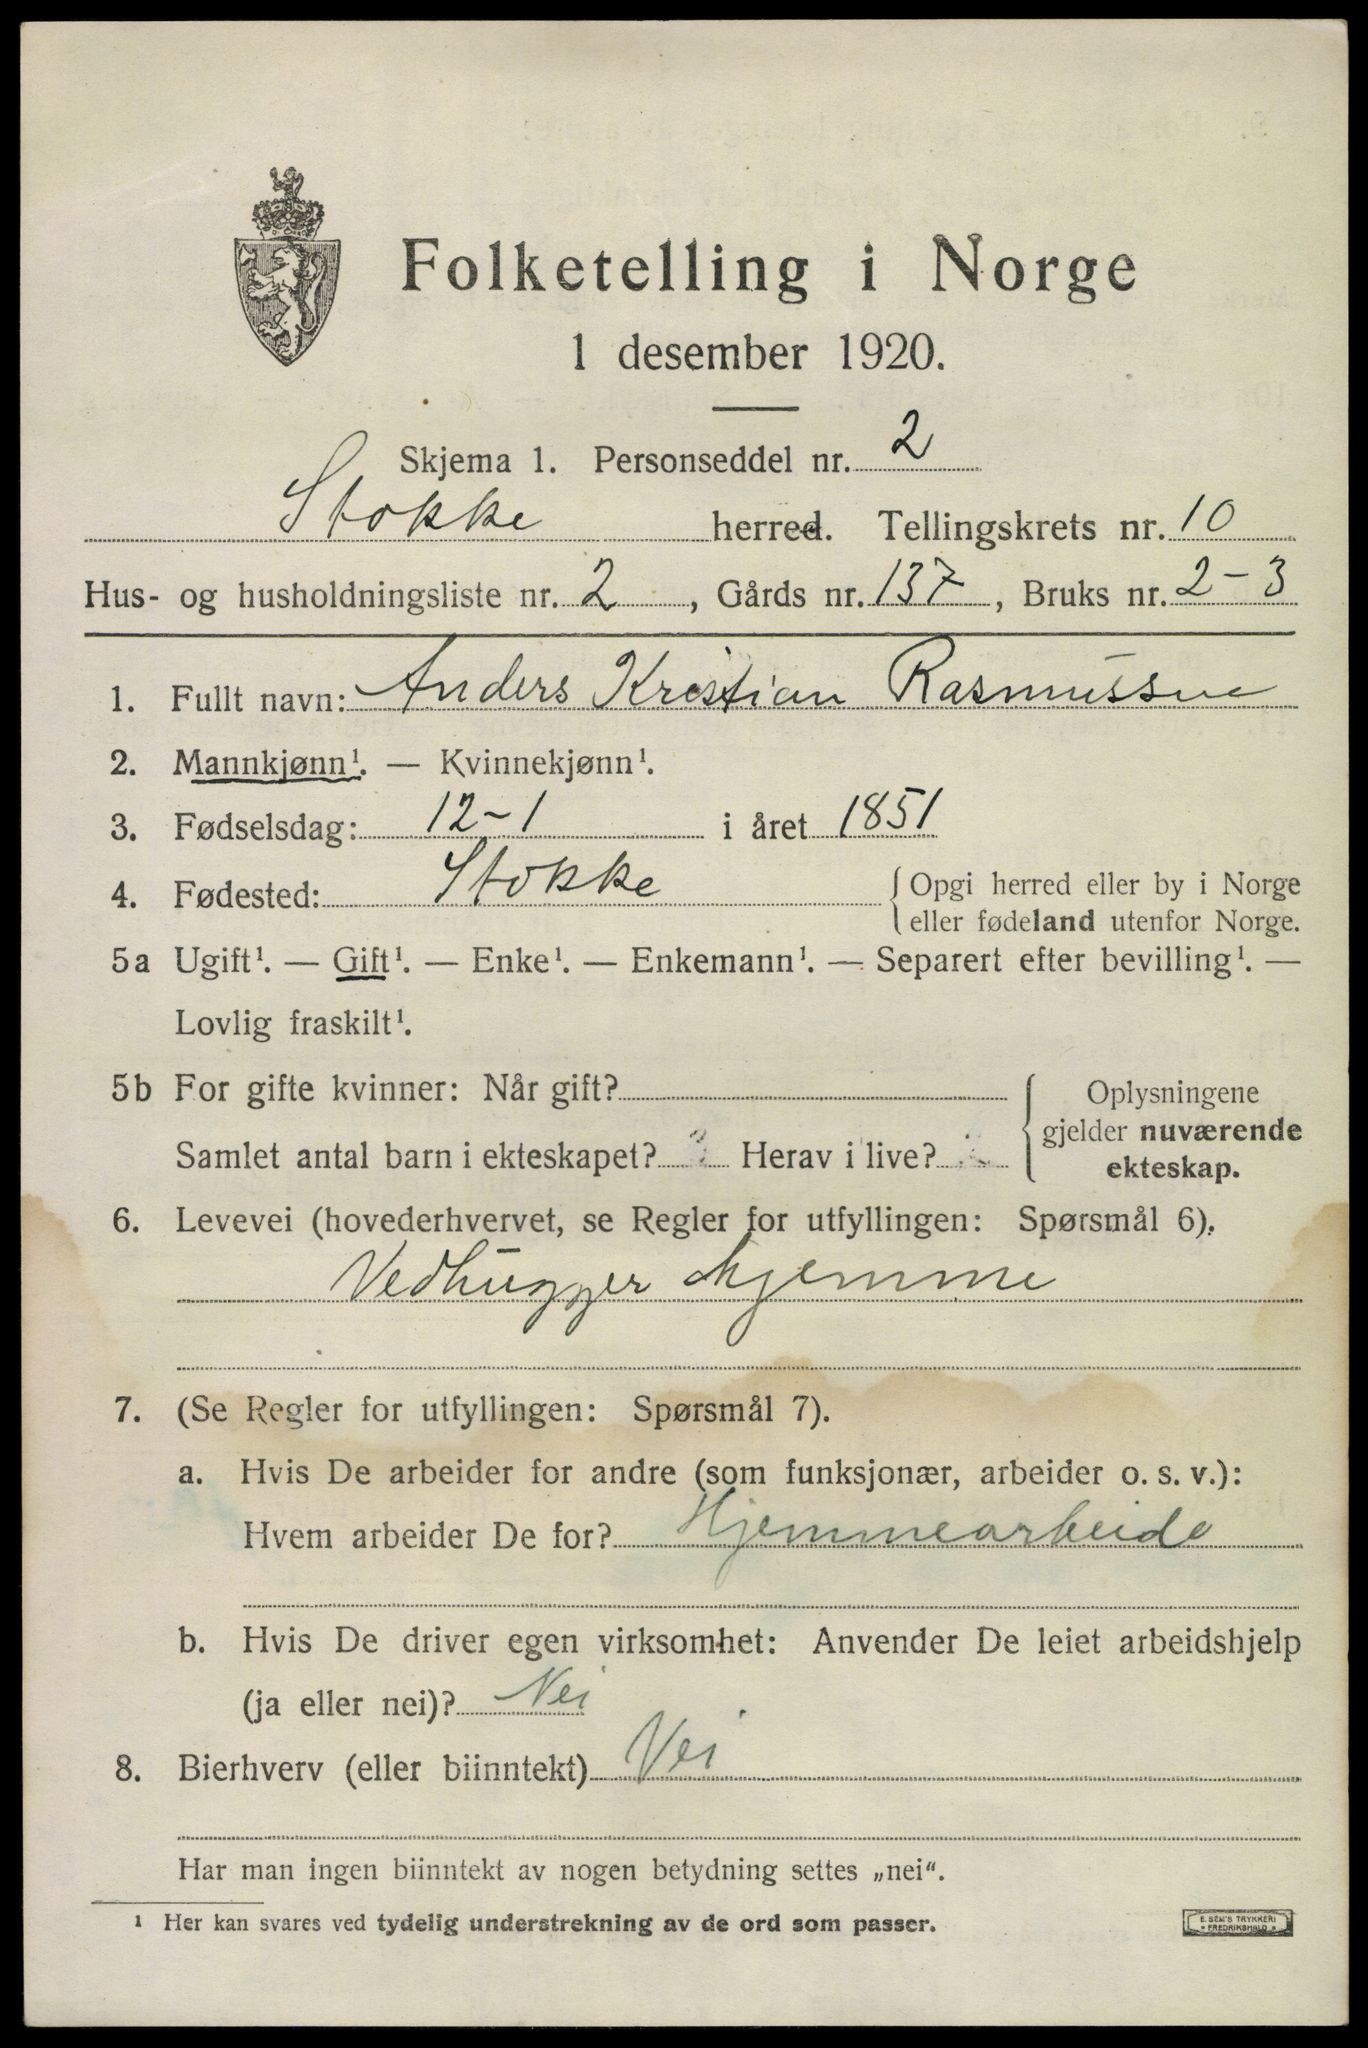 Folketelling i Norge
1 desember 1920.
Skjema 1. Personseddel nr. 2
Stokke herred. Tellingskrets nr. 10
Hus- og husholdningsliste nr. 2, Gårds nr. 137, Bruks nr. 2-3
1. Fullt navn: Anders Kristian Rasmussen
2. Mannkjønn¹. — Kvinnekjønn¹.
3. Fødselsdag: 12-1 i året 1851
4. Fødested: Stokke { Opgi herred eller by i Norge
eller fødeland utenfor Norge.
5a Ugift¹. — Gift¹. — Enke¹. — Enkemann¹. — Separert efter bevilling¹. —
Lovlig fraskilt¹.
5b For gifte kvinner: Når gift? { Oplysningene
gjelder nuværende
Samlet antal barn i ekteskapet? Herav i live?
ekteskap.
6. Levevei (hovederhvervet, se Regler for utfyllingen: Spørsmål 6).
Vedhugger hjemme
7. (Se Regler for utfyllingen: Spørsmål 7).
a. Hvis De arbeider for andre (som funksjonær, arbeider o. s. v.):
Hvem arbeider De for? Hjemmearbeide
b. Hvis De driver egen virksomhet: Anvender De leiet arbeidshjelp
(ja eller nei)? Nei
8. Bierhverv (eller biinntekt) Nei
Har man ingen biinntekt av nogen betydning settes „nei“.
¹ Her kan svares ved tydelig understrekning av de ord som passer.
E. SEM'S TRYKKERI
* FREDRIKSHALD *